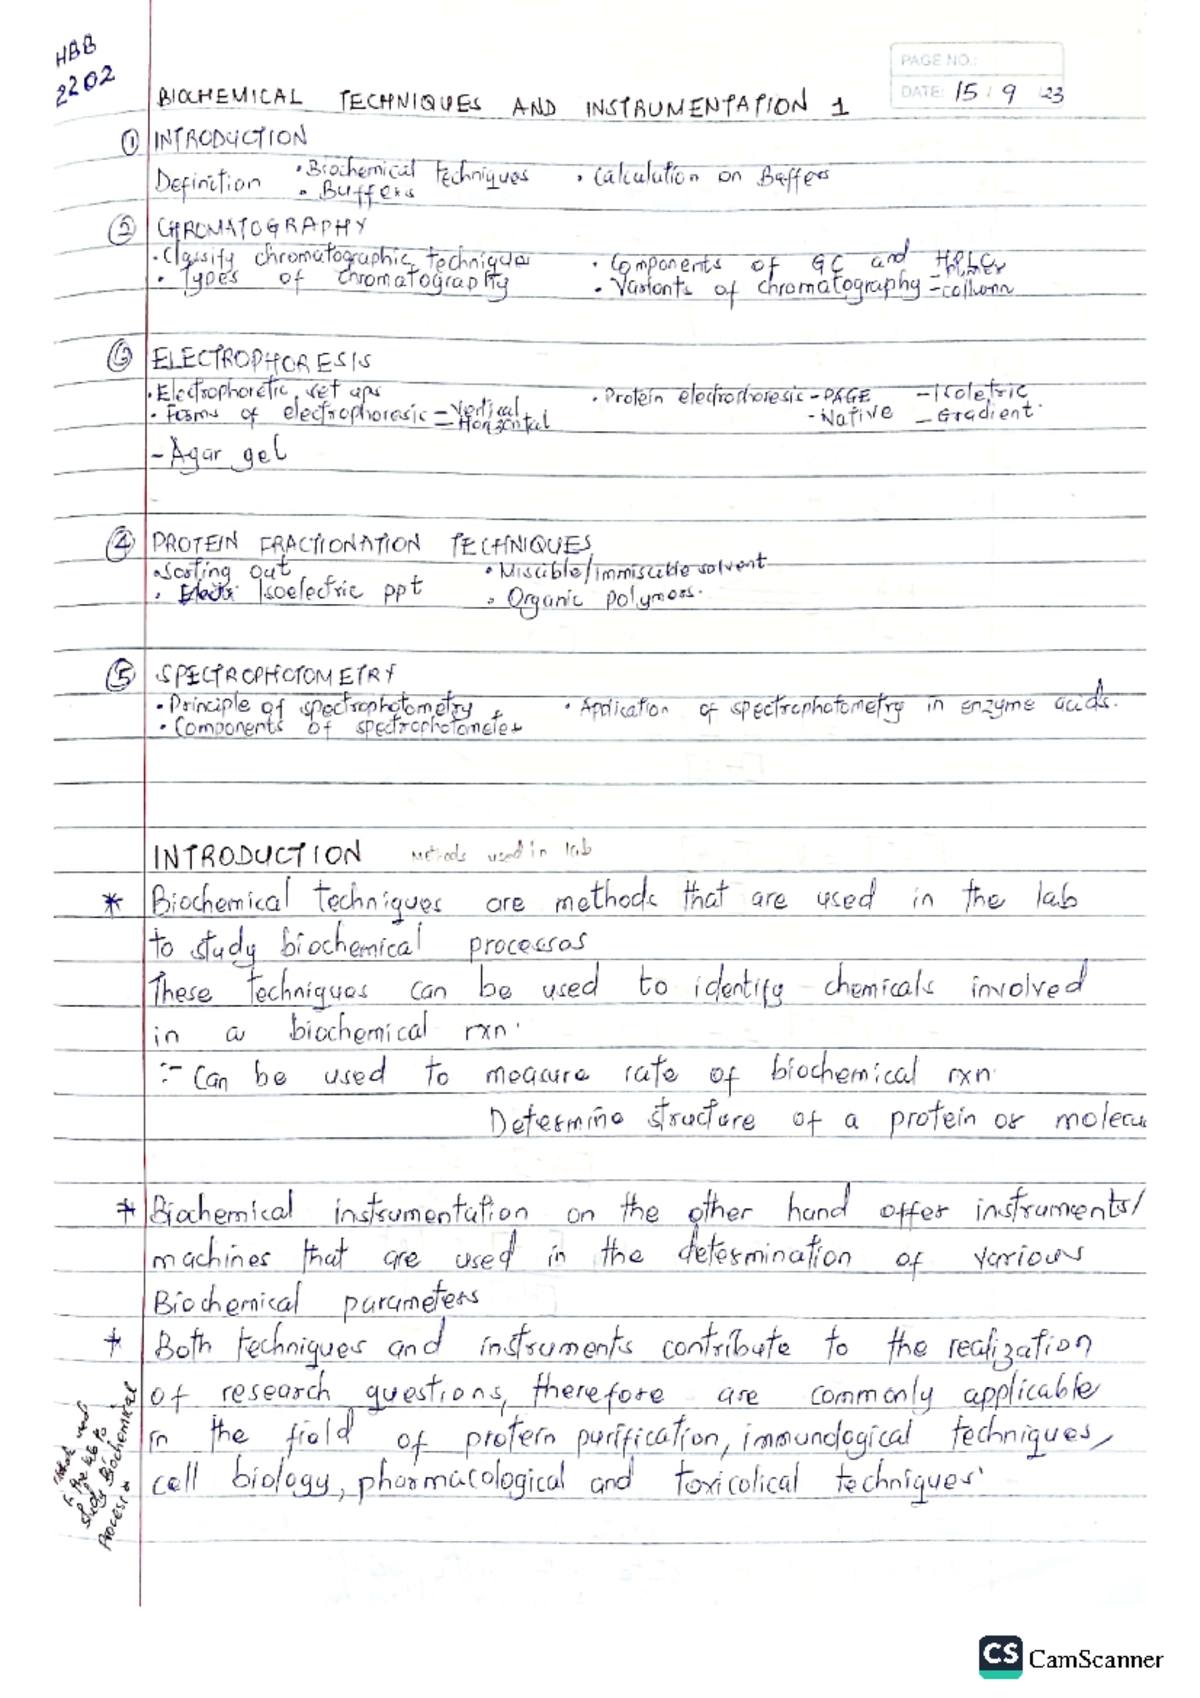 HBB
2202
PAGE NO.:
DATE: 15 / 9 / 23
BIOCHEMICAL TECHNIQUES AND INSTRUMENTATION 1
① INTRODUCTION
Definition • Biochemical techniques • Calculation on Buffers
• Buffers
② CHROMATOGRAPHY
• Classify chromatographic techniques • Components of GC and HPLC
• Types of chromatography • Variants of chromatography - column
③ ELECTROPHORESIS
• Electrophoretic set ups • Protein electrophoresis - PAGE - Isoletric
• Forms of electrophoresis = Vertical - Native - Gradient.
- Horizontal
- Agar gel
④ PROTEIN FRACTIONATION TECHNIQUES
• Salting out • Miscible/immiscible solvent
• Isoelectric ppt • Organic polymers.
⑤ SPECTROPHOTOMETRY
• Principle of spectrophotometry • Application of spectrophotometry in enzyme acids.
• Components of spectrophotometer
INTRODUCTION Methods used in lab
* Biochemical techniques are methods that are used in the lab
to study biochemical processes
These techniques can be used to identify chemicals involved
in a biochemical rxn.
:- Can be used to measure rate of biochemical rxn.
Determine structure of a protein or molecu
* Biochemical instrumentation on the other hand offer instruments/
machines that are used in the determination of various
Biochemical parameters
* Both techniques and instruments contribute to the realization
of research questions, therefore are commonly applicable
in the field of protein purification, immunological techniques,
cell biology, pharmacological and toxicolical techniques.
used
in the lab to
study Biochemical
Process
CS CamScanner